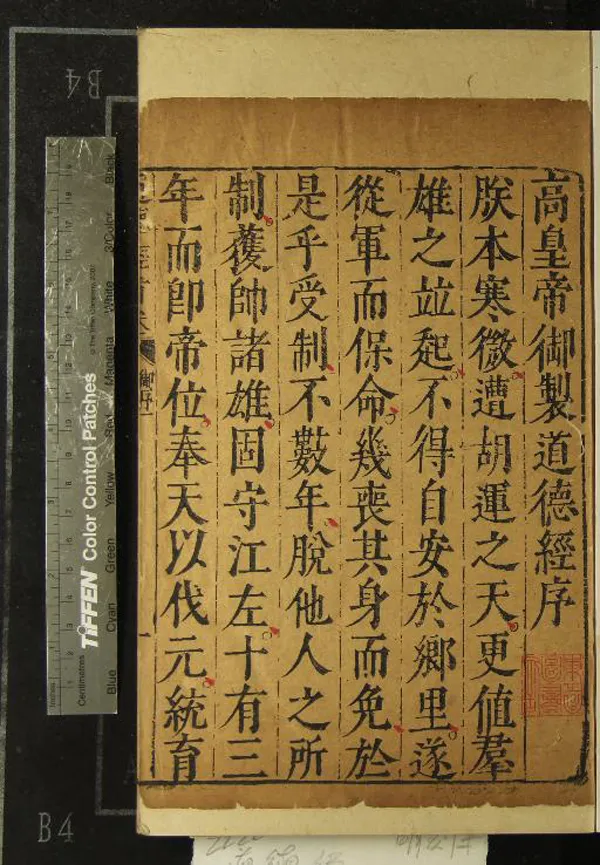 高皇帝御製道德經序
朕本寒微遭胡運之天更值羣
雄之竝起不得自安於鄉里遂
從軍而保命幾喪其身而免於
是乎受制不數年脫他人之所
制獲帥諸雄固守江左十有三
年而即帝位奉天以伐元統育
御序
一
B4
B4
TIFFEN Color Control Patches
Blue
Cyan
Green
Yellow
Red
Magenta
White
3/Color
Black
Centimetres
Inches